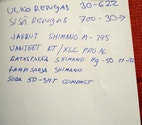 ULKO RENGAS 30-622
SISÄ RENGAS 700-30→
JARRUT SHIMANO M-395
VANTEET RT/XLC PRO
RATASPAKKA SHIMANO HG-50
KAMPISARJA SHIMANO
SORA 50-34T COMPACT